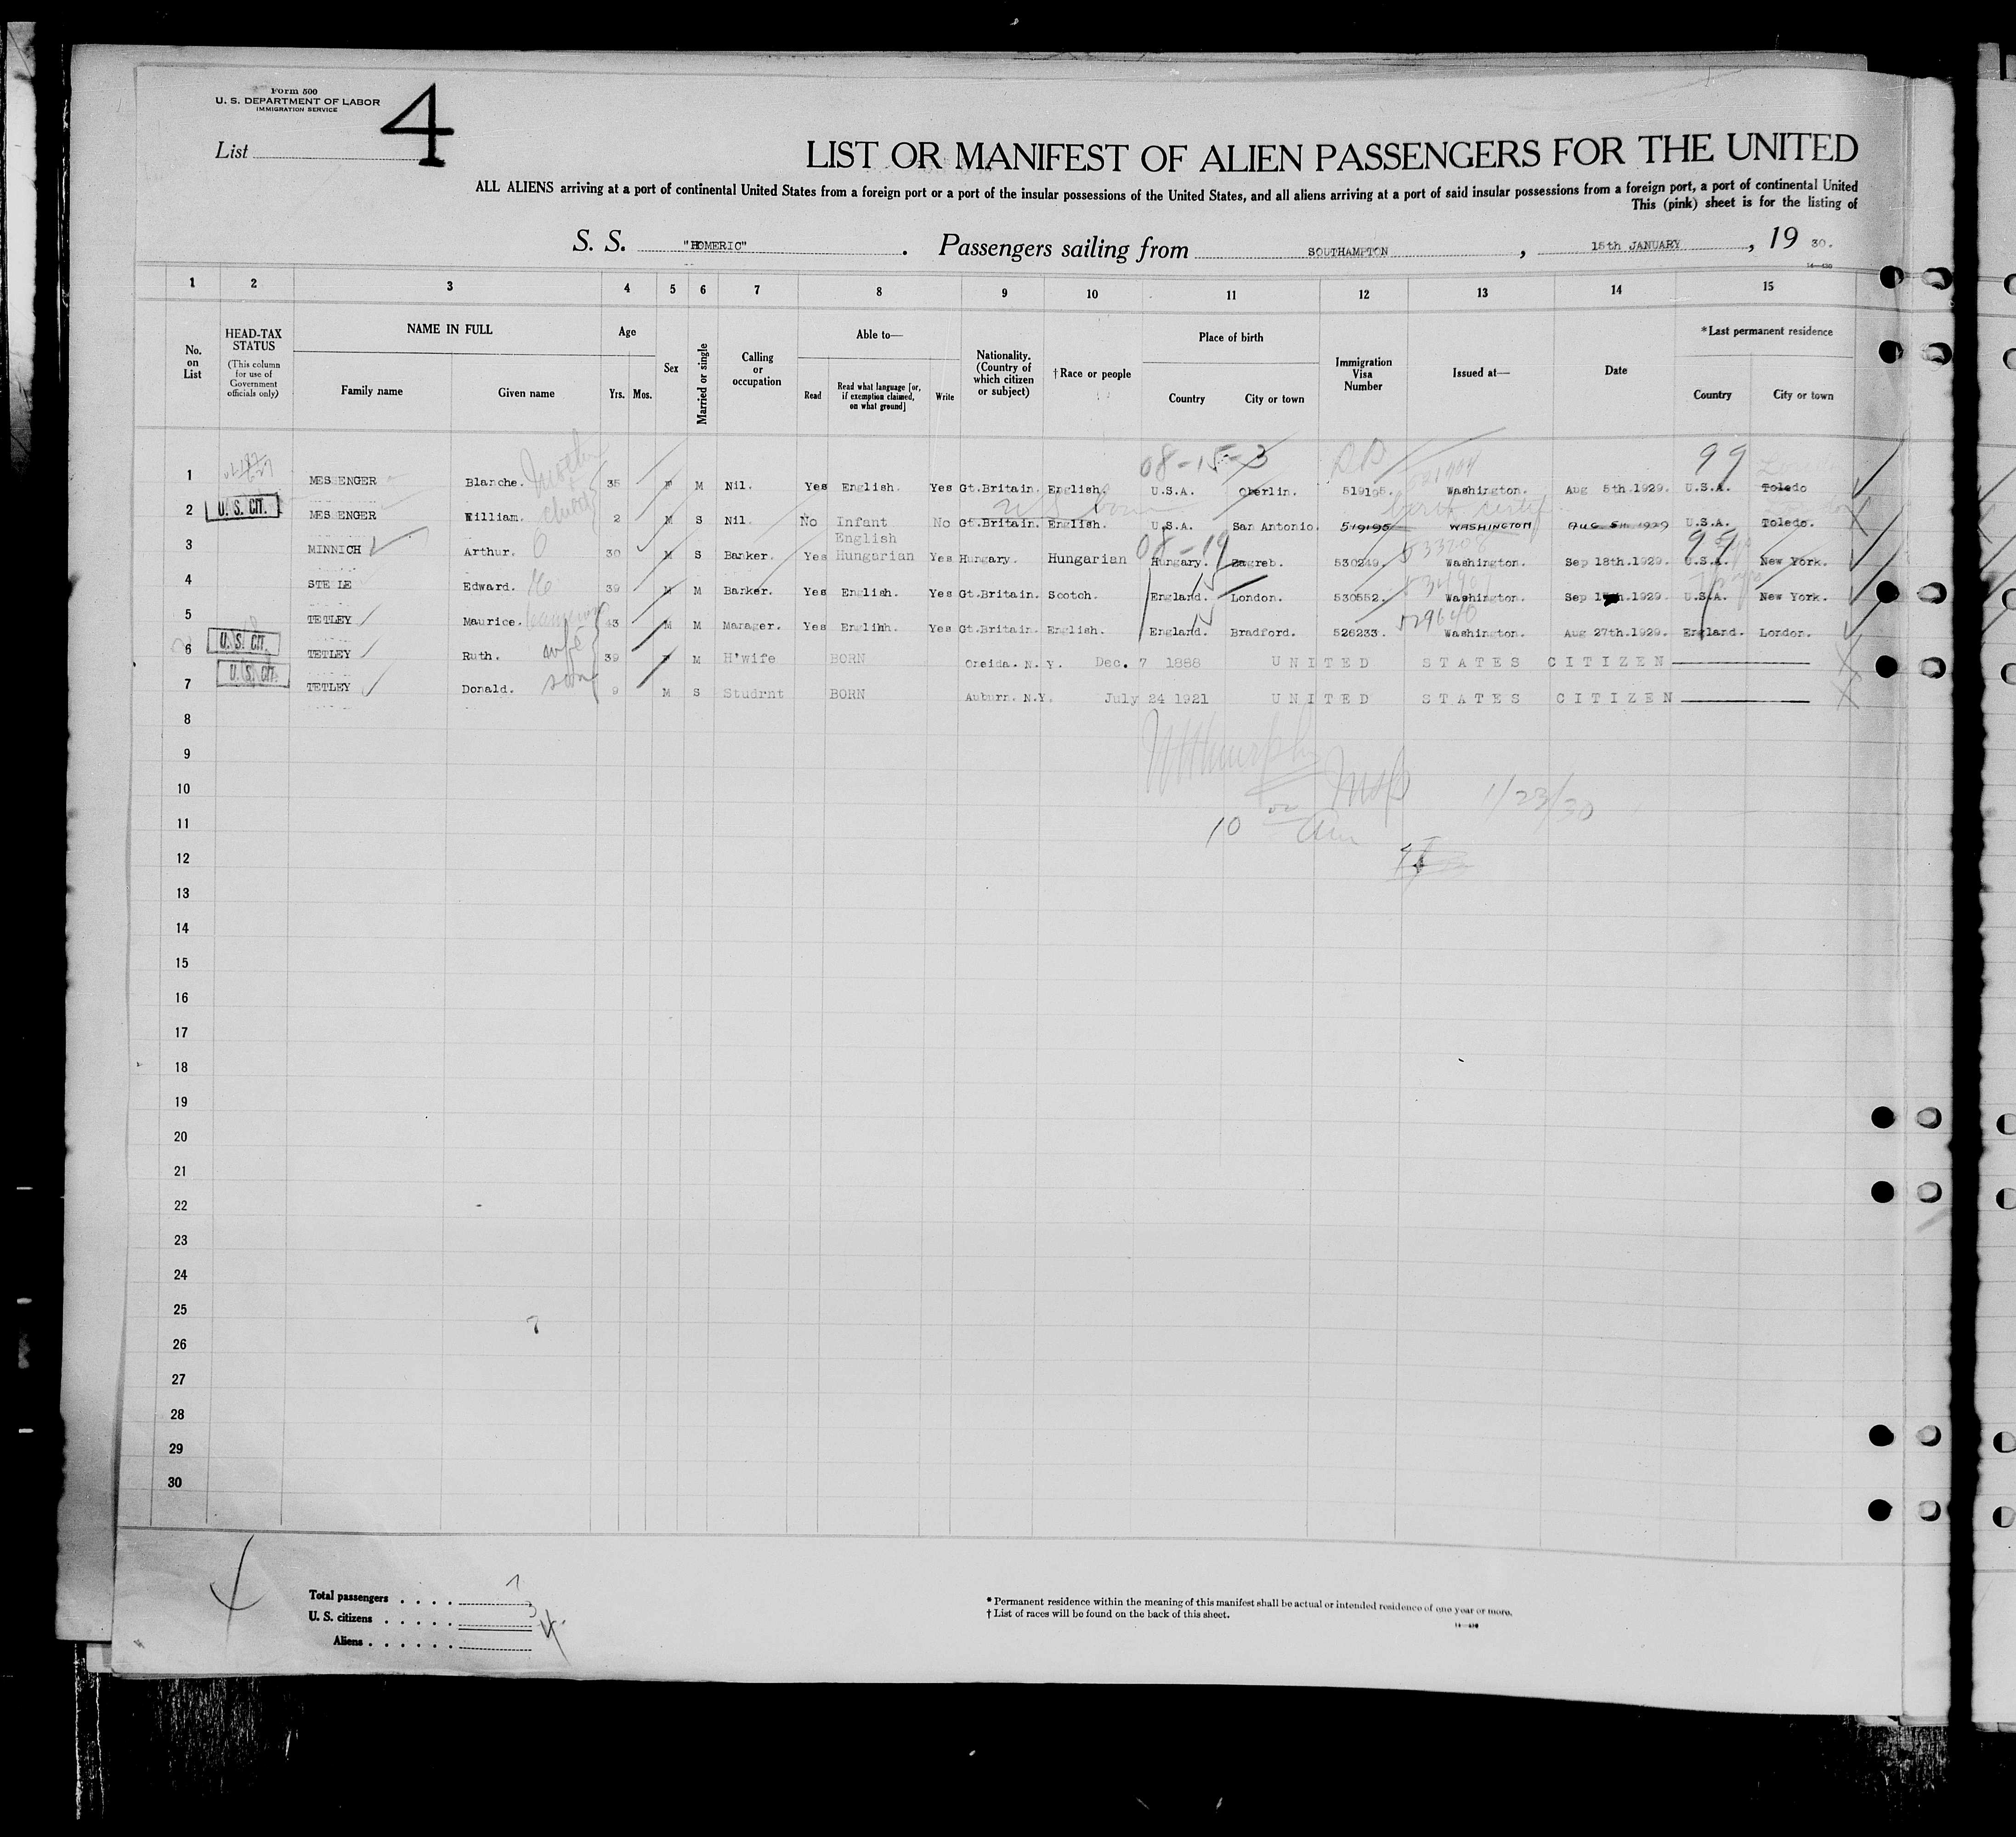 Form 500
U. S. DEPARTMENT OF LABOR
IMMIGRATION SERVICE
List 4
LIST OR MANIFEST OF ALIEN PASSENGERS FOR THE UNITED
ALL ALIENS arriving at a port of continental United States from a foreign port or a port of the insular possessions of the United States, and all aliens arriving at a port of said insular possessions from a foreign port, a port of continental United
This (pink) sheet is for the listing of
S. S. "HOMERIC". Passengers sailing from SOUTHAMPTON, 15th JANUARY, 19 30.
14—430
1 2 3 4 5 6 7 8 9 10 11 12 13 14 15
No. on List
HEAD-TAX STATUS
(This column for use of Government officials only)
NAME IN FULL
Family name Given name
Age
Yrs. Mos.
Sex
Married or single
Calling or occupation
Able to—
Read Read what language [or, if exemption claimed, on what ground] Write
Nationality. (Country of which citizen or subject)
†Race or people
Place of birth
Country City or town
Immigration Visa Number
Issued at—
Date
*Last permanent residence
Country City or town
08-15-3 99
1 MESSENGER Blanche. Mother 35 F M Nil. Yes English. Yes Gt.Britain. English. U.S.A. Oberlin. 519195. Washington. Aug 5th.1929. U.S.A. Toledo
U S born birth certif
2 U. S. CIT. MESSENGER William. child 2 M S Nil. No Infant No Gt.Britain. English. U.S.A. San Antonio. 519195 WASHINGTON AUG 5TH 1929 U.S.A. Toledo.
08-19 99
3 MINNICH Arthur. 30 M S Banker. Yes English Hungarian Yes Hungary. Hungarian Hungary. Zagreb. 530249. Washington. Sep 18th.1929. U.S.A. New York.
4 STE LE Edward. 39 M M Banker. Yes English. Yes Gt.Britain. Scotch. England. London. 530552. Washington. Sep U.S.A. New York.
529640
5 TETLEY Maurice. 43 M M Manager. Yes Englihh. Yes Gt.Britain. English. England. Bradford. 526233. Washington. Aug 27th.1929. England. London.
6 U. S. CIT. TETLEY Ruth. wife 39 F M H'wife BORN Oneida. N.Y. Dec. 7 1888 UNITED STATES CITIZEN
7 U. S. CIT. TETLEY Donald. son 9 M S Studrnt BORN Auburn. N.Y. July 24 1921 UNITED STATES CITIZEN
8
9
10 1/23/30
11 10
12
13
14
15
16
17
18
19
20
21
22
23
24
25
26
27
28
29
30
Total passengers . . . . 7
U. S. citizens . . . . . 3
Aliens . . . . . . 4
* Permanent residence within the meaning of this manifest shall be actual or intended residence of one year or more.
† List of races will be found on the back of this sheet.
14—430